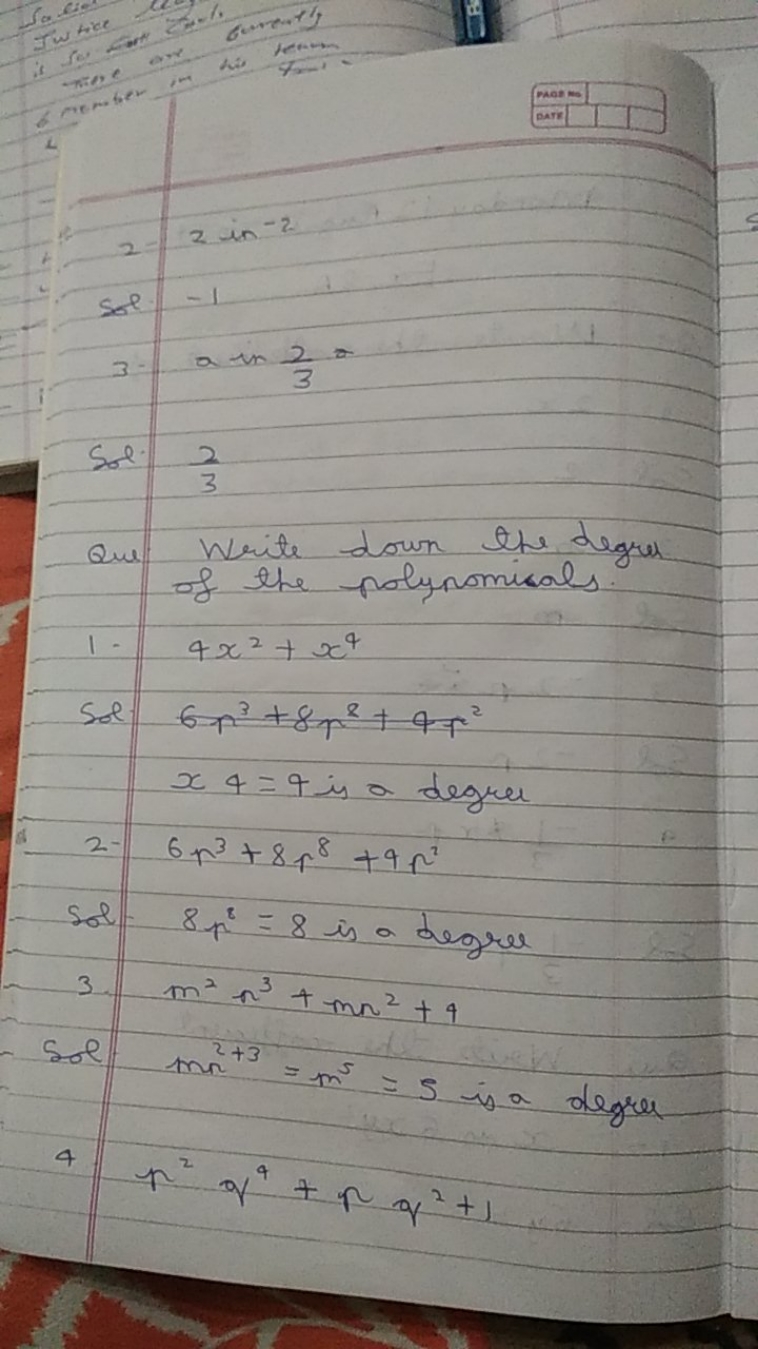 Justice
is so
There are currently
6 member in his team
PAGE No
DATE
2- 2 in -2
Sol. -1
3- a in 2/3 a
Sol. 2/3
Que Write down the degree
of the polynomials.
1- 4x² + x⁴
Sol 6p³ + 8p⁸ + 4p²
x 4 = 4 is a degree
2- 6p³ + 8p⁸ + 4p²
Sol 8p⁸ = 8 is a degree
3 m² n³ + mn² + 4
Sol mn²⁺³ = m⁵ = 5 is a degree
4 p² q⁴ + p q² + 1